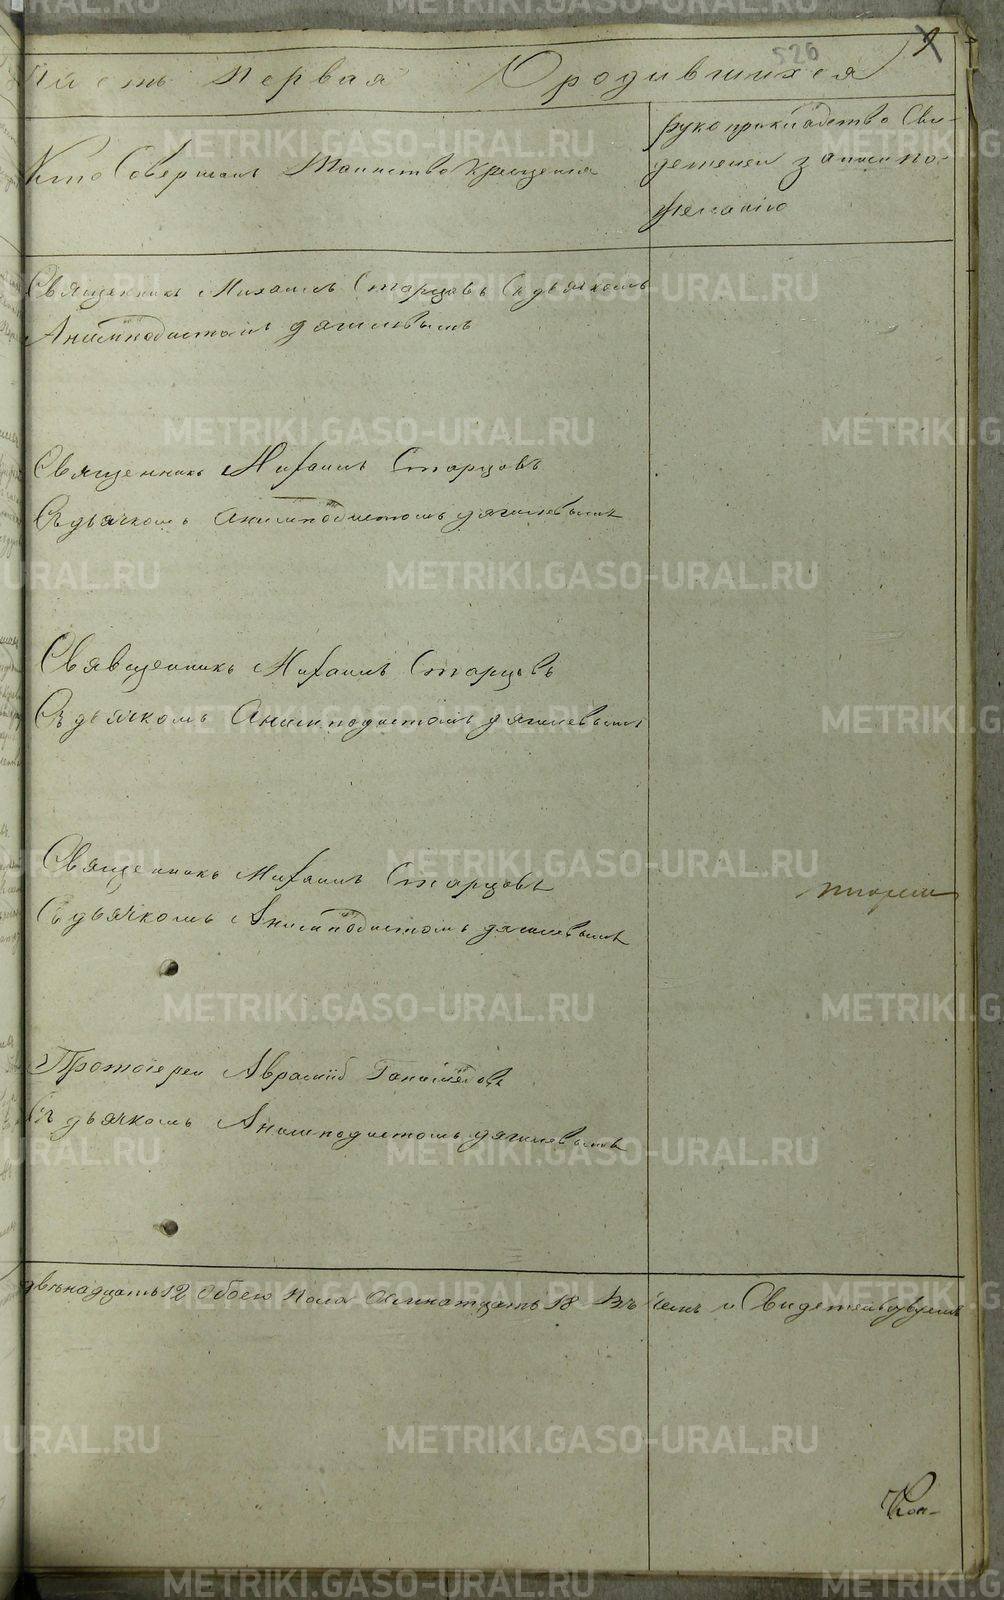 526
Часть Первая О родившихся
Кто Совершалъ Таинство Крещенія
рукоприкладство Сви-
детелей записи по
желанію
Священникъ Михаилъ Старцовъ Съ дьячкомъ
Анимподистомъ Дягилевымъ
Священникъ Михаилъ Старцовъ
Съ дьячкомъ Анимподистомъ Дягилевымъ
Священникъ Михаилъ Старцовъ
Съ дьячкомъ Анимподистомъ Дягилевымъ
Священникъ Михаилъ Старцовъ
Съ дьячкомъ Анимподистомъ Дягилевымъ
Протоіерей Аврамій
Съ дьячкомъ Анимподистомъ Дягилевымъ
двенадцать 12 обоего Пола Осмнатцать 18 Въ чемъ и Свидетельствуемъ
METRIKI.GASO-URAL.RU